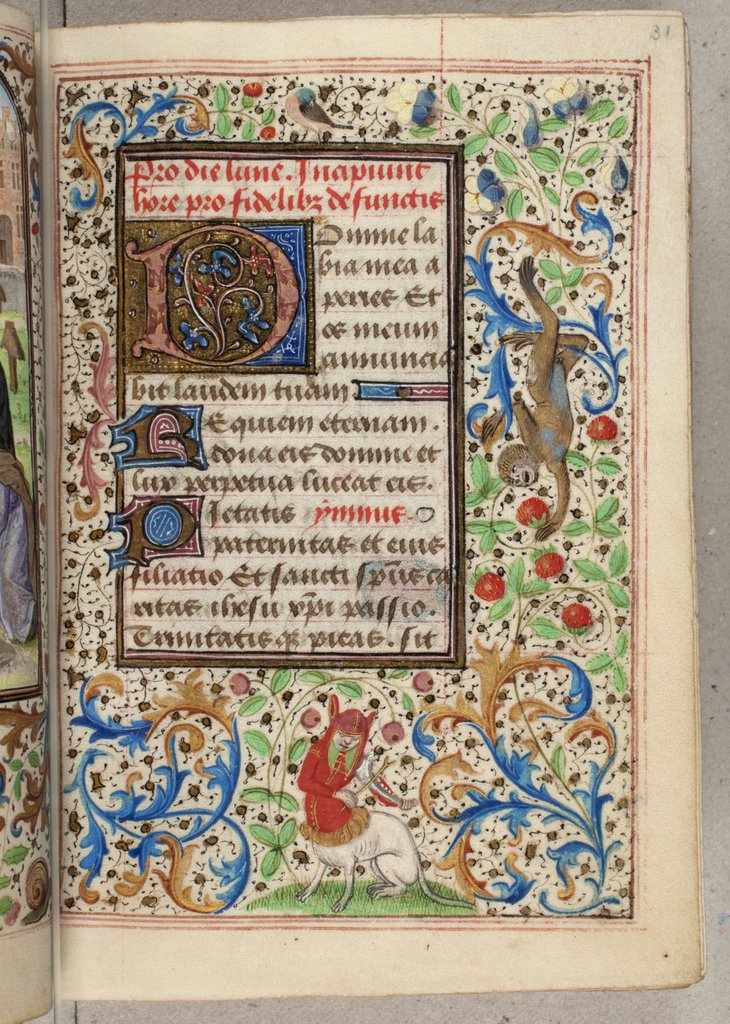 31
Pro die lune. Incipiunt
hore pro fidelibꝫ defunctis
Domine la
bia mea a
peries Et
os meum
annuncia
bit laudem tuam
Requiem eternam.
dona eis domine et
lux perpetua luceat eis.
Pietatis ymnus.
paternitas et eius
filiatio Et sancti sp̄us ca
ritas ihesu xp̄i passio.
Trinitatis qꝫ pietas. sit